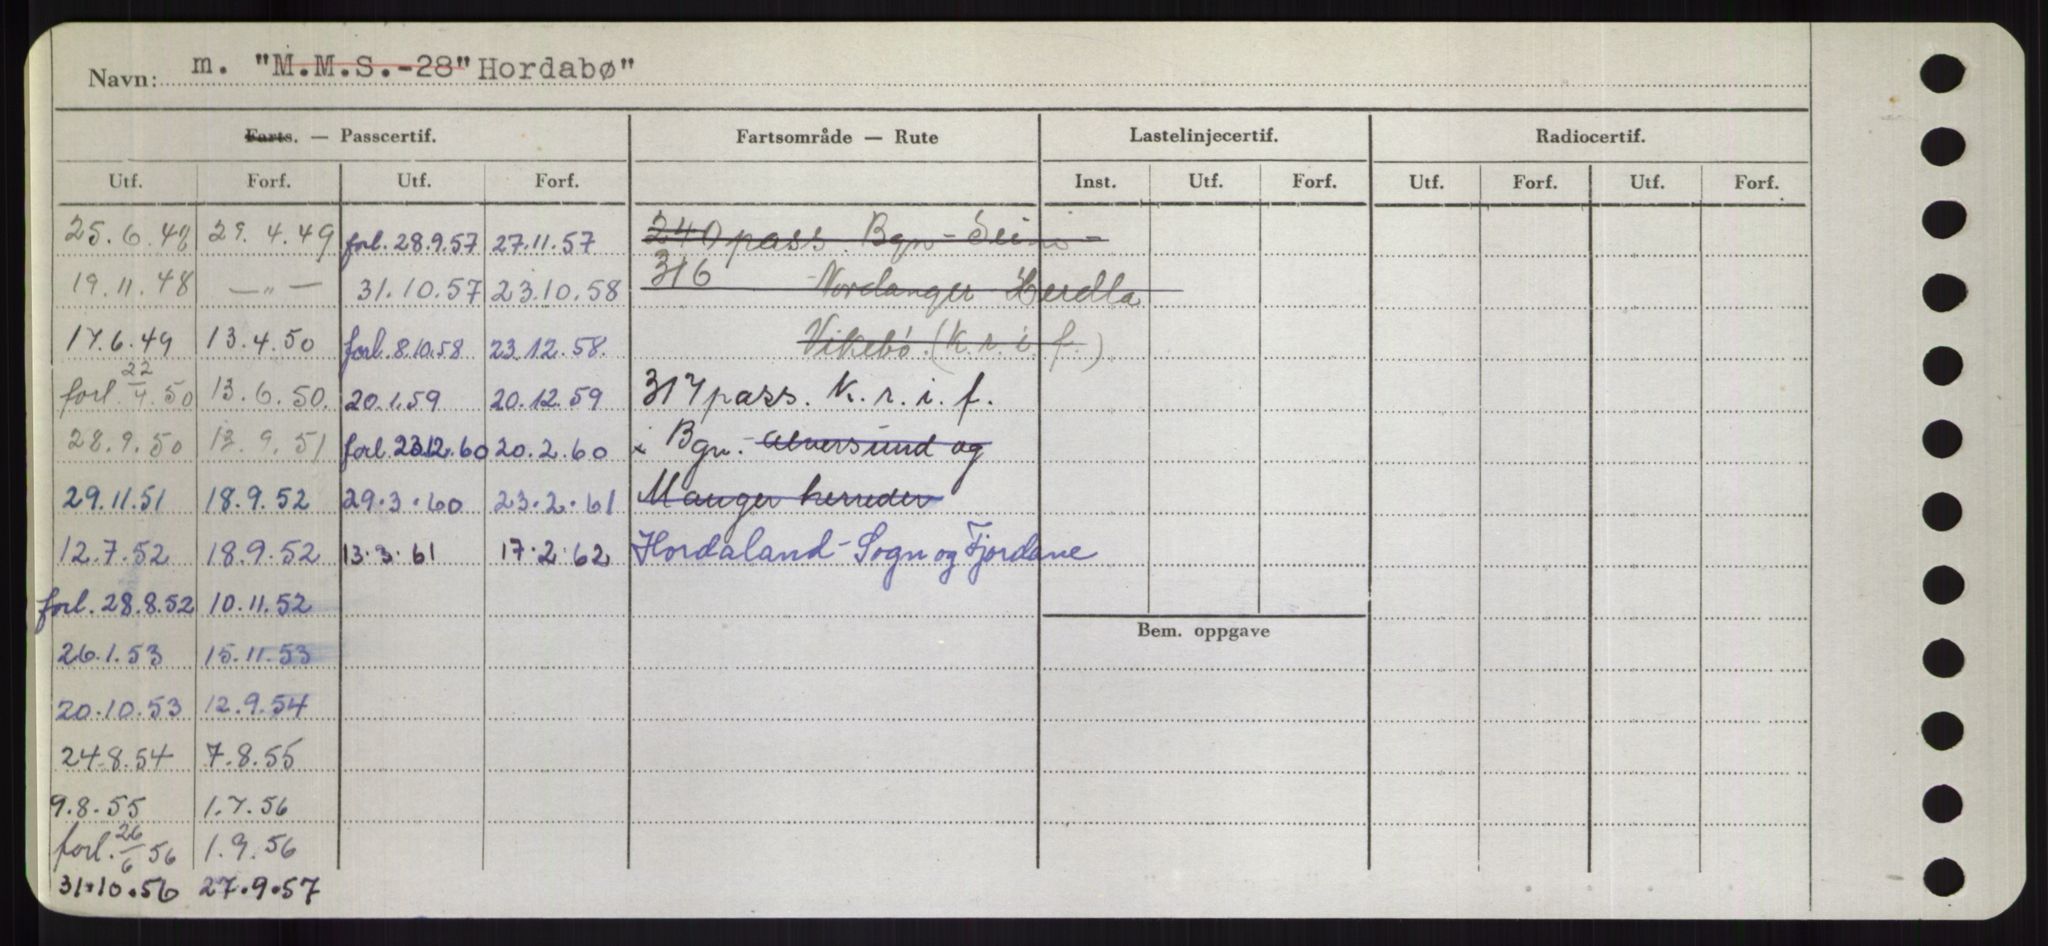 Navn: m. "M.M.S.-28" Hordabø"
Farts. — Passcertif. Fartsområde — Rute Lastelinjecertif. Radiocertif.
Utf. Forf. Utf. Forf. Inst. Utf. Forf. Utf. Forf. Utf. Forf.
25.6.48 29.4.49 forl. 28.9.57 27.11.57 240 pass. Bgn -
19.11.48 —„— 31.10.57 23.10.58 316 Nordanger Herdla
17.6.49 13.4.50 forl. 8.10.58 23.12.58. Vikebø. (k.r.i.f.)
forl. 22/4.50 13.6.50. 20.1.59 20.12.59 317 pass. k.r.i.f.
28.9.50 13.9.51 forl. 23.12.60 20.2.60 i Bgn. - Alversund og
29.11.51 18.9.52 29.3.60 23.2.61 Manger herreder
12.7.52 18.9.52 13.3.61 17.2.62 Hordaland - Sogn og Fjordane
forl. 28.8.52 10.11.52
Bem. oppgave
26.1.53 15.11.53
20.10.53 12.9.54
24.8.54 7.8.55
9.8.55 1.7.56
forl. 26/6 56 1.9.56
31.10.56 27.9.57